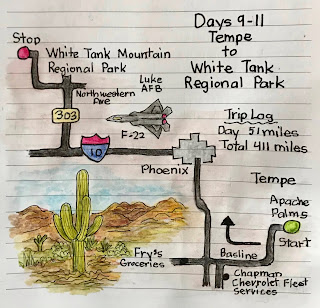 Days 9-11
Tempe
to
White Tank
Regional Park
Stop
White Tank Mountain
Regional Park
Luke
AFB
Northwestern
Ave
303
F-22
10
Trip Log
Day 51 miles
Total 411 miles
Phoenix
Tempe
Apache
Palms
Start
Basline
Fry's
Groceries
Chapman
Chevrolet Fleet
Services